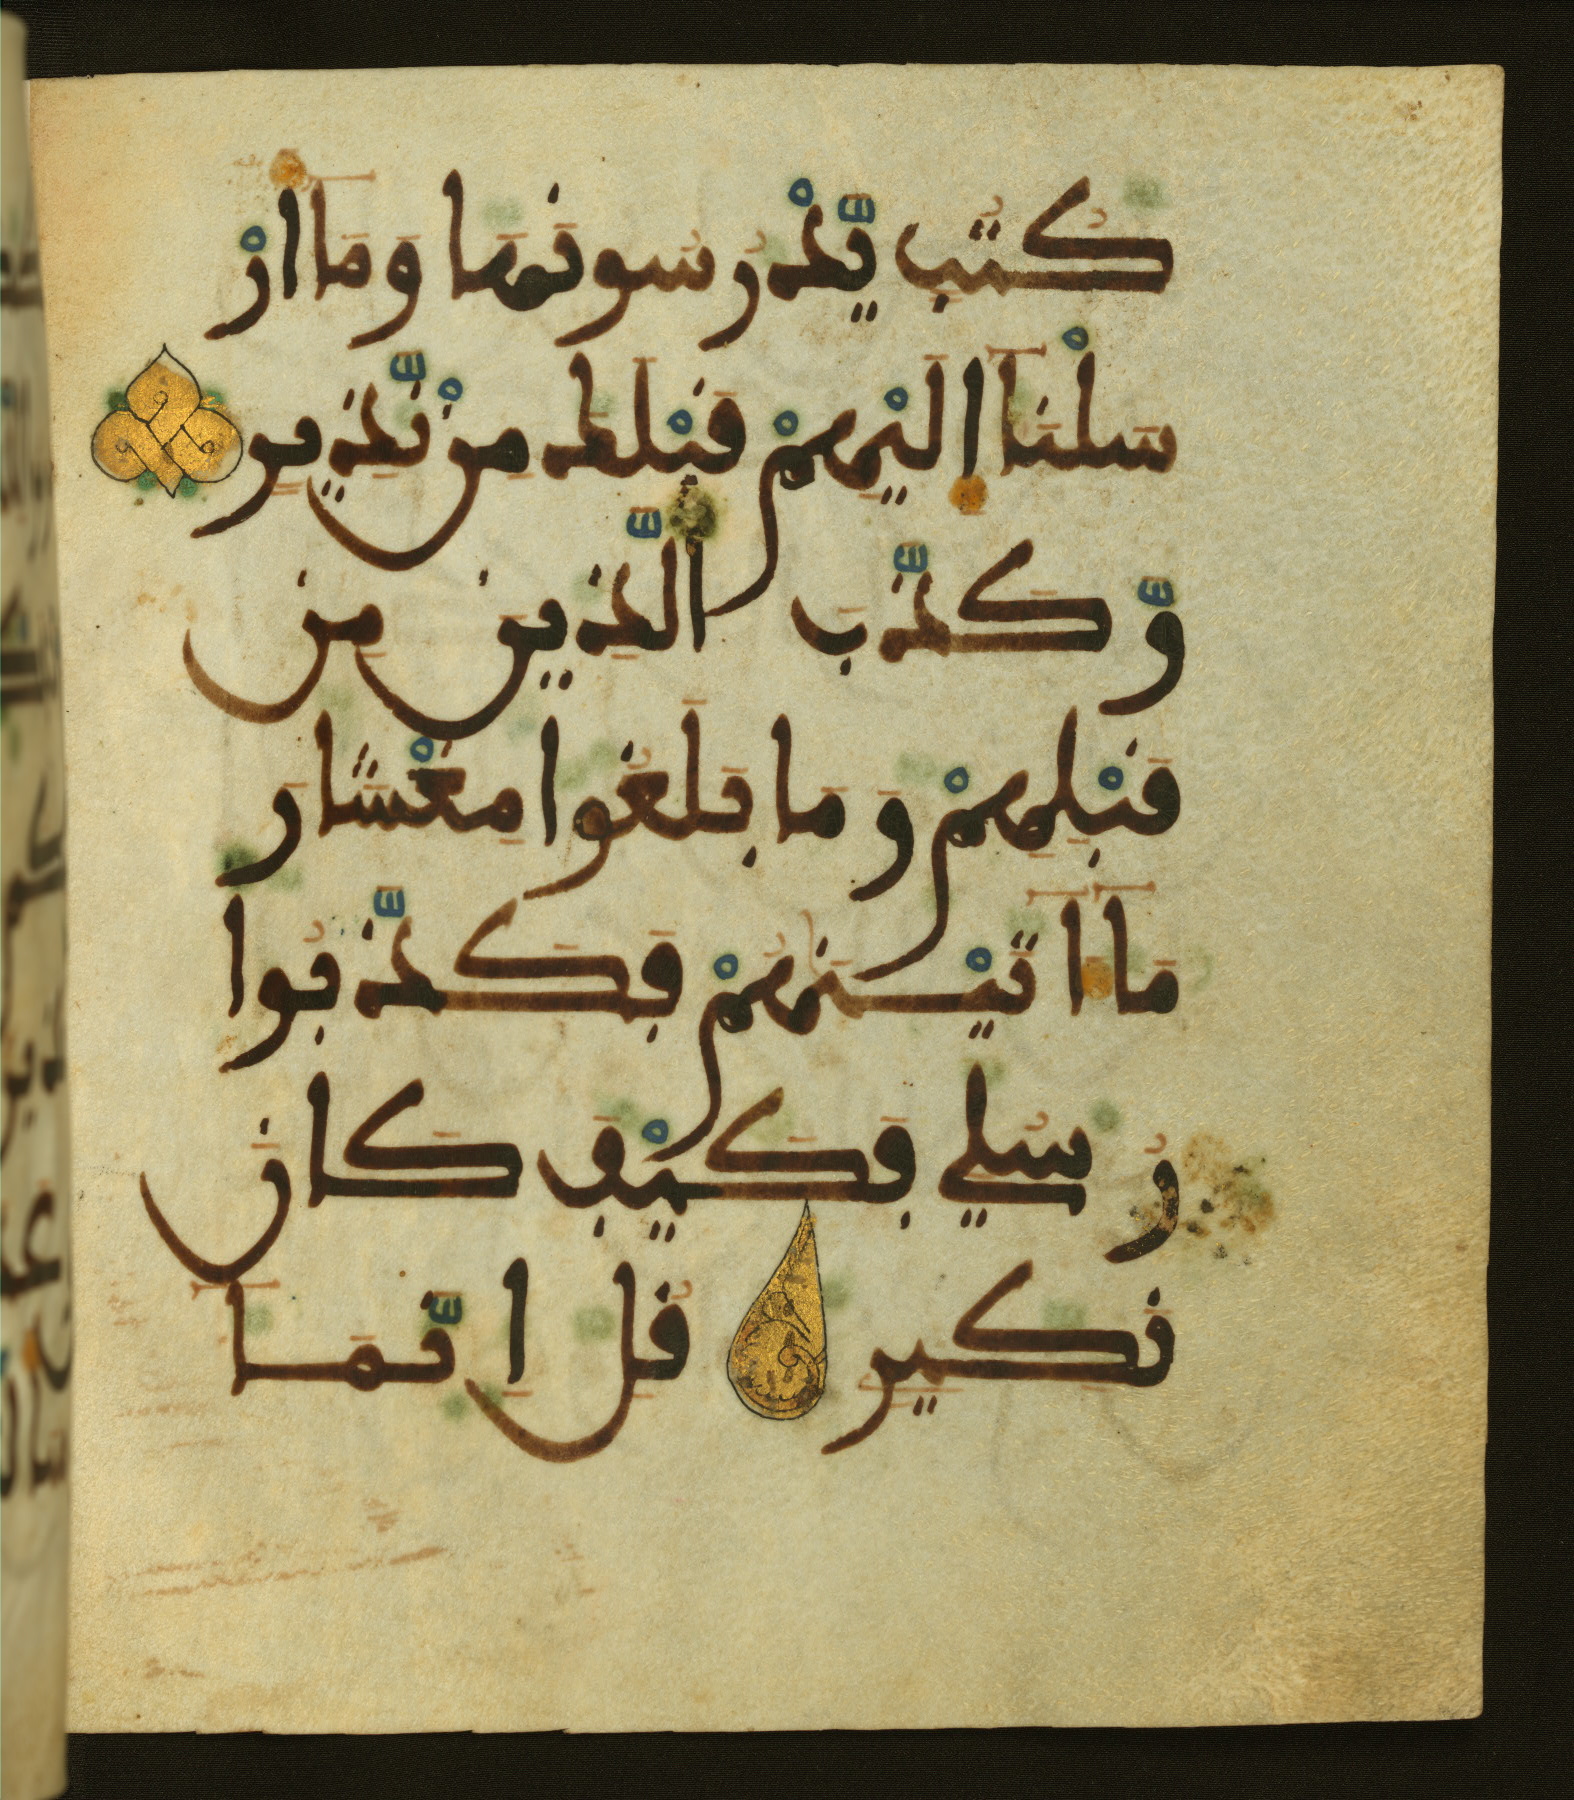 كُتُبٍ يَّدْرُسُونَهَا وَمَا أَرْ
سَلْنَا إِلَيْهِمْ قَبْلَكَ مِنْ نَّذِيرٍ
وَّكَذَّبَ الَّذِينَ مِن
قَبْلِهِمْ وَمَا بَلَغُوا مِعْشَارَ
مَا ءَاتَيْنَهُمْ فَكَذَّبُوا
رُسُلِي فَكَيْفَ كَانَ
نَكِيرِ قُلِ انَّمَا